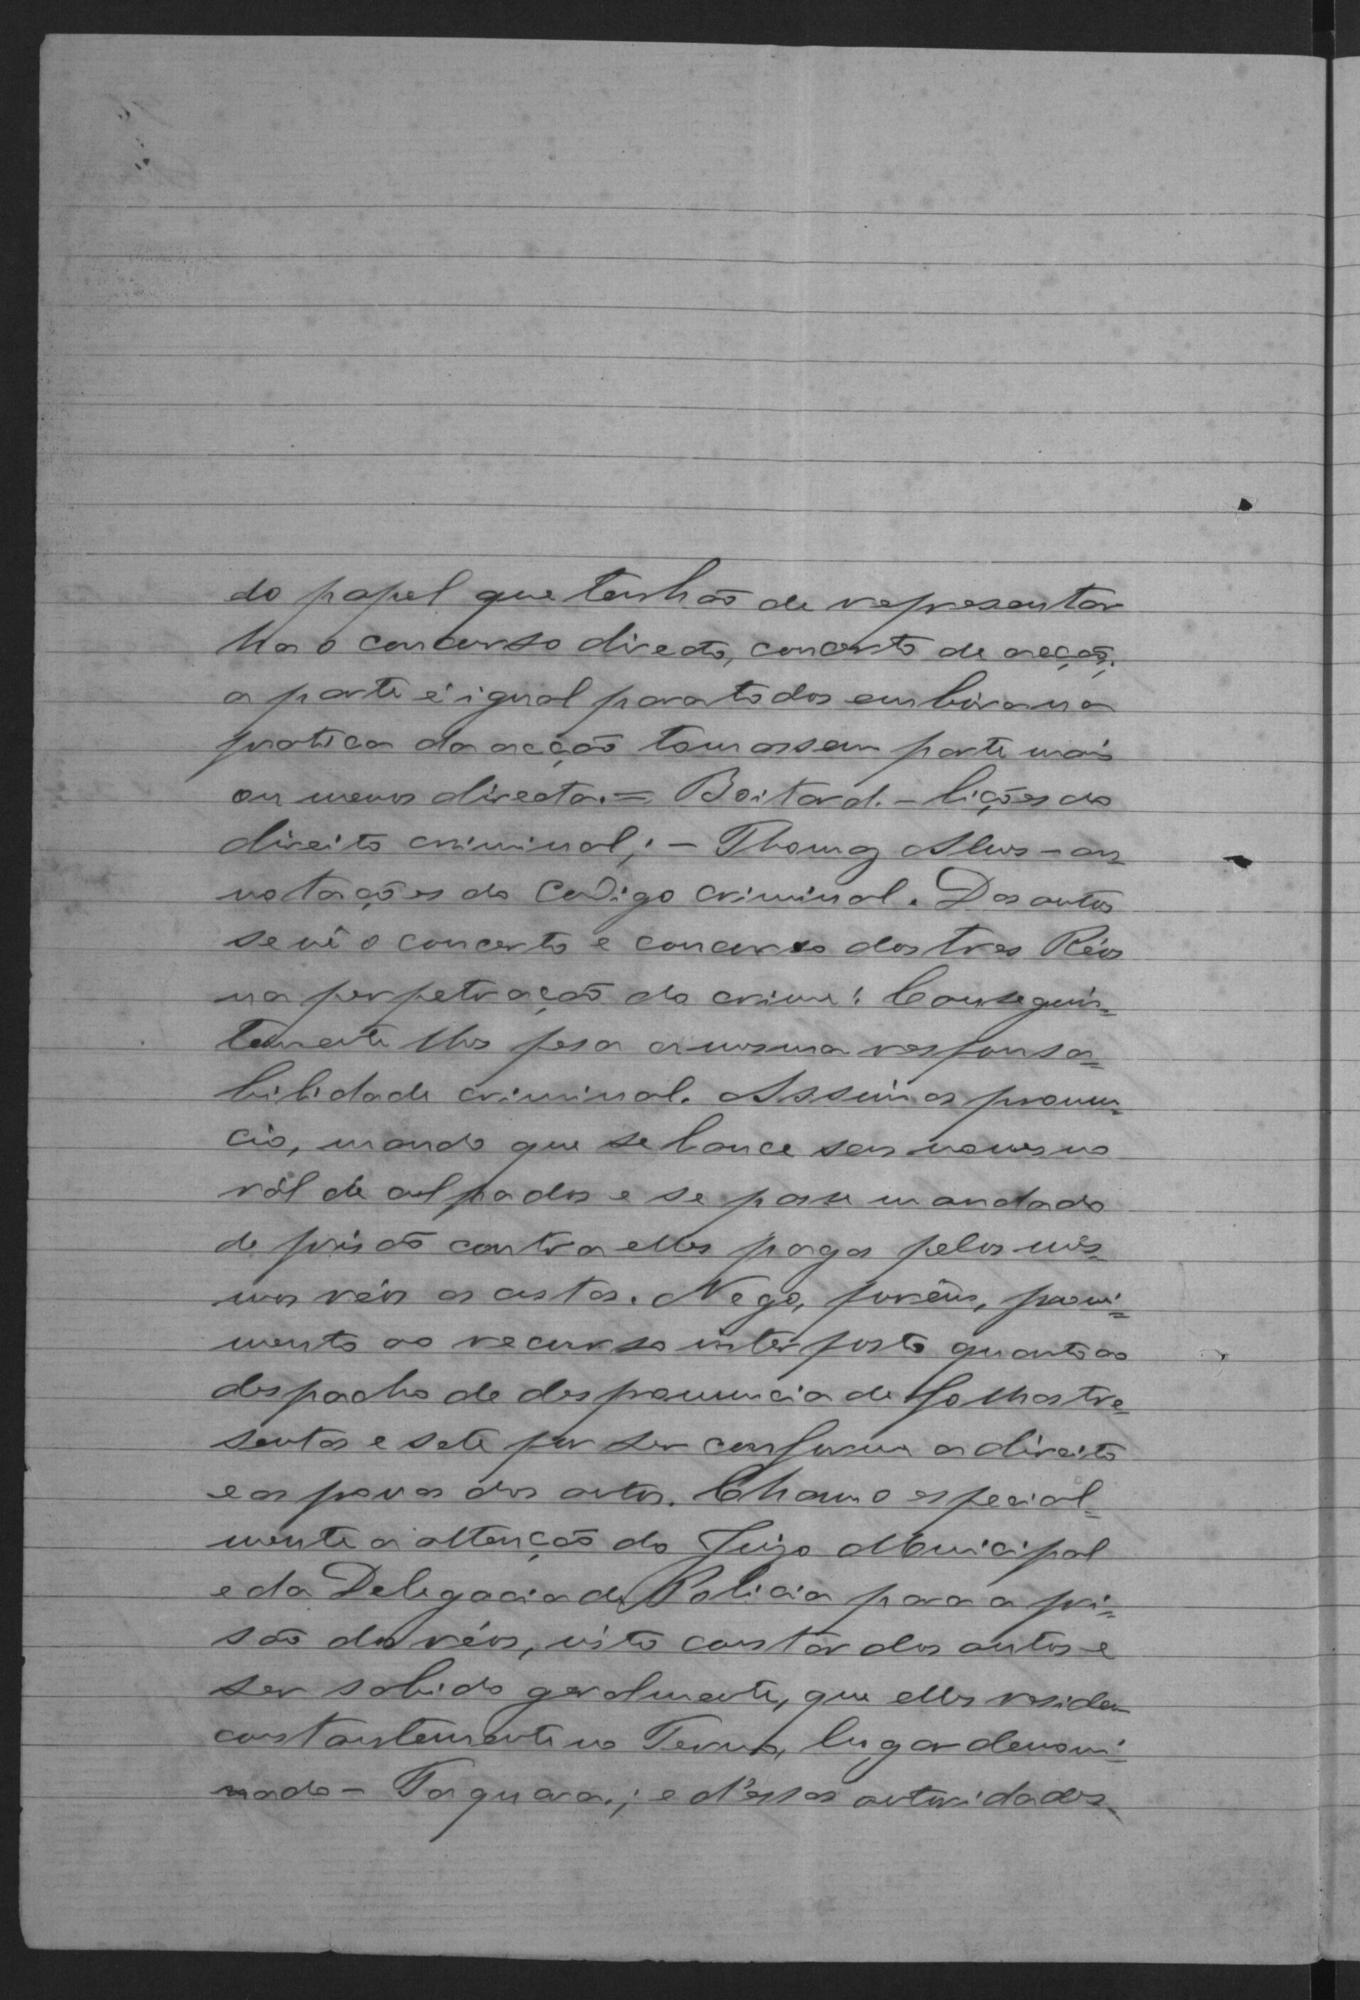 do papel que tenhão de representar
ha o concurso directo, concerto de acção;
a parte é igual para todos embora na
pratica da acção tomassem parte mais
ou menos directa. = Boitard. - lições de
direito criminal; - Thomaz Alves - an=
notações do Codigo criminal. Dos autos
se vê o concerto e concurso dos tres Réos
na perpetração do crime: Conseguin=
temente lhes pesa a mesma responsa=
bilidade criminal. Assim os pronun=
cio, mando que se lance seus nomes no
ról de culpados e se passe mandado
de prisão contra elles pagas pelos mes=
mos réos as custas. Nego, porêm, provi=
mento ao recurso interposto quanto ao
despacho de despronuncia de folhas tre=
sentas e sete por ser conforme a direito
e as provas dos autos. Chamo especial=
mente a attenção do Juizo Municipal
e da Delegacia de Policia para a pri=
são dos réos, visto constar dos autos e
ser sabido geralmente, que elles residem
constantemente no Termo, lugar denomi=
nado - Taquara.; e d'essas autoridades